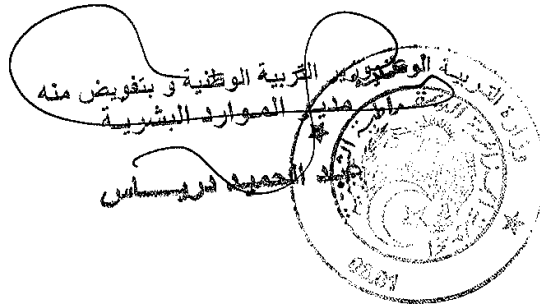 عن وزير التربية الوطنية و بتفويض منه
مدير الموارد البشرية
عبد الحميد دريـــاس
وزارة التربية الوطنية